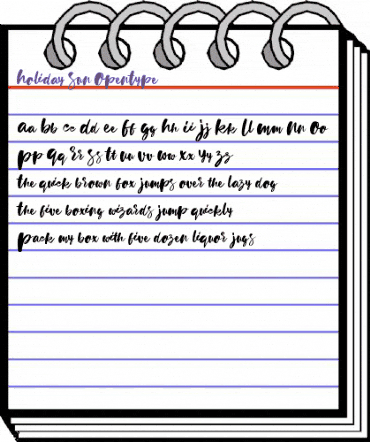 Holiday Sun Opentype
aa bb cc dd ee ff gg hh ii jj kk ll mm nn oo
pp qq rr ss tt uu vv ww xx yy zz
the quick brown fox jumps over the lazy dog
the five boxing wizards jump quickly
pack my box with five dozen liquor jugs